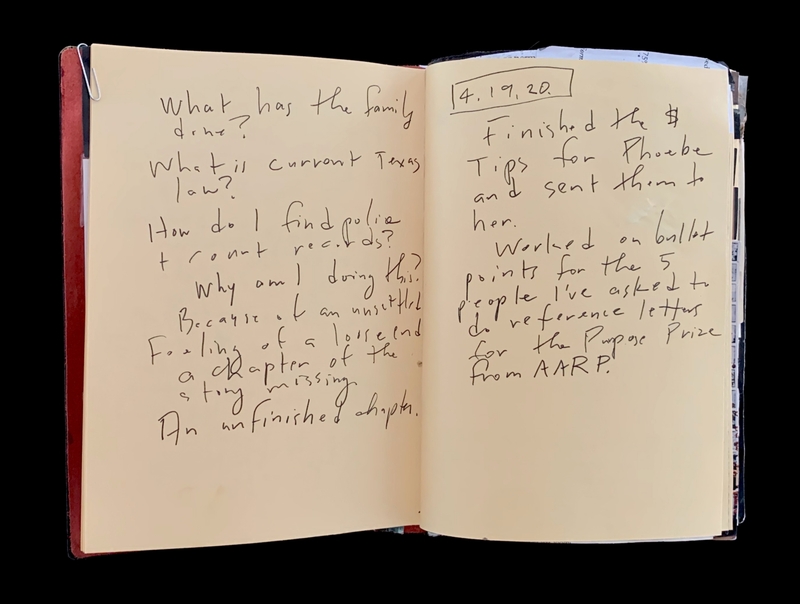 What has the family
done?
What is current Texas
law?
How do I find police
+ court records?
Why am I doing this?
Because of an unsettled
Feeling of a loose end
a chapter of the
story missing.
An unfinished chapter.
4.19.20.
Finished the $
Tips for Phoebe
and sent them to
her.
Worked on bullet
points for the 5
people I've asked to
do reference letters
for the Purpose Prize
from AARP.